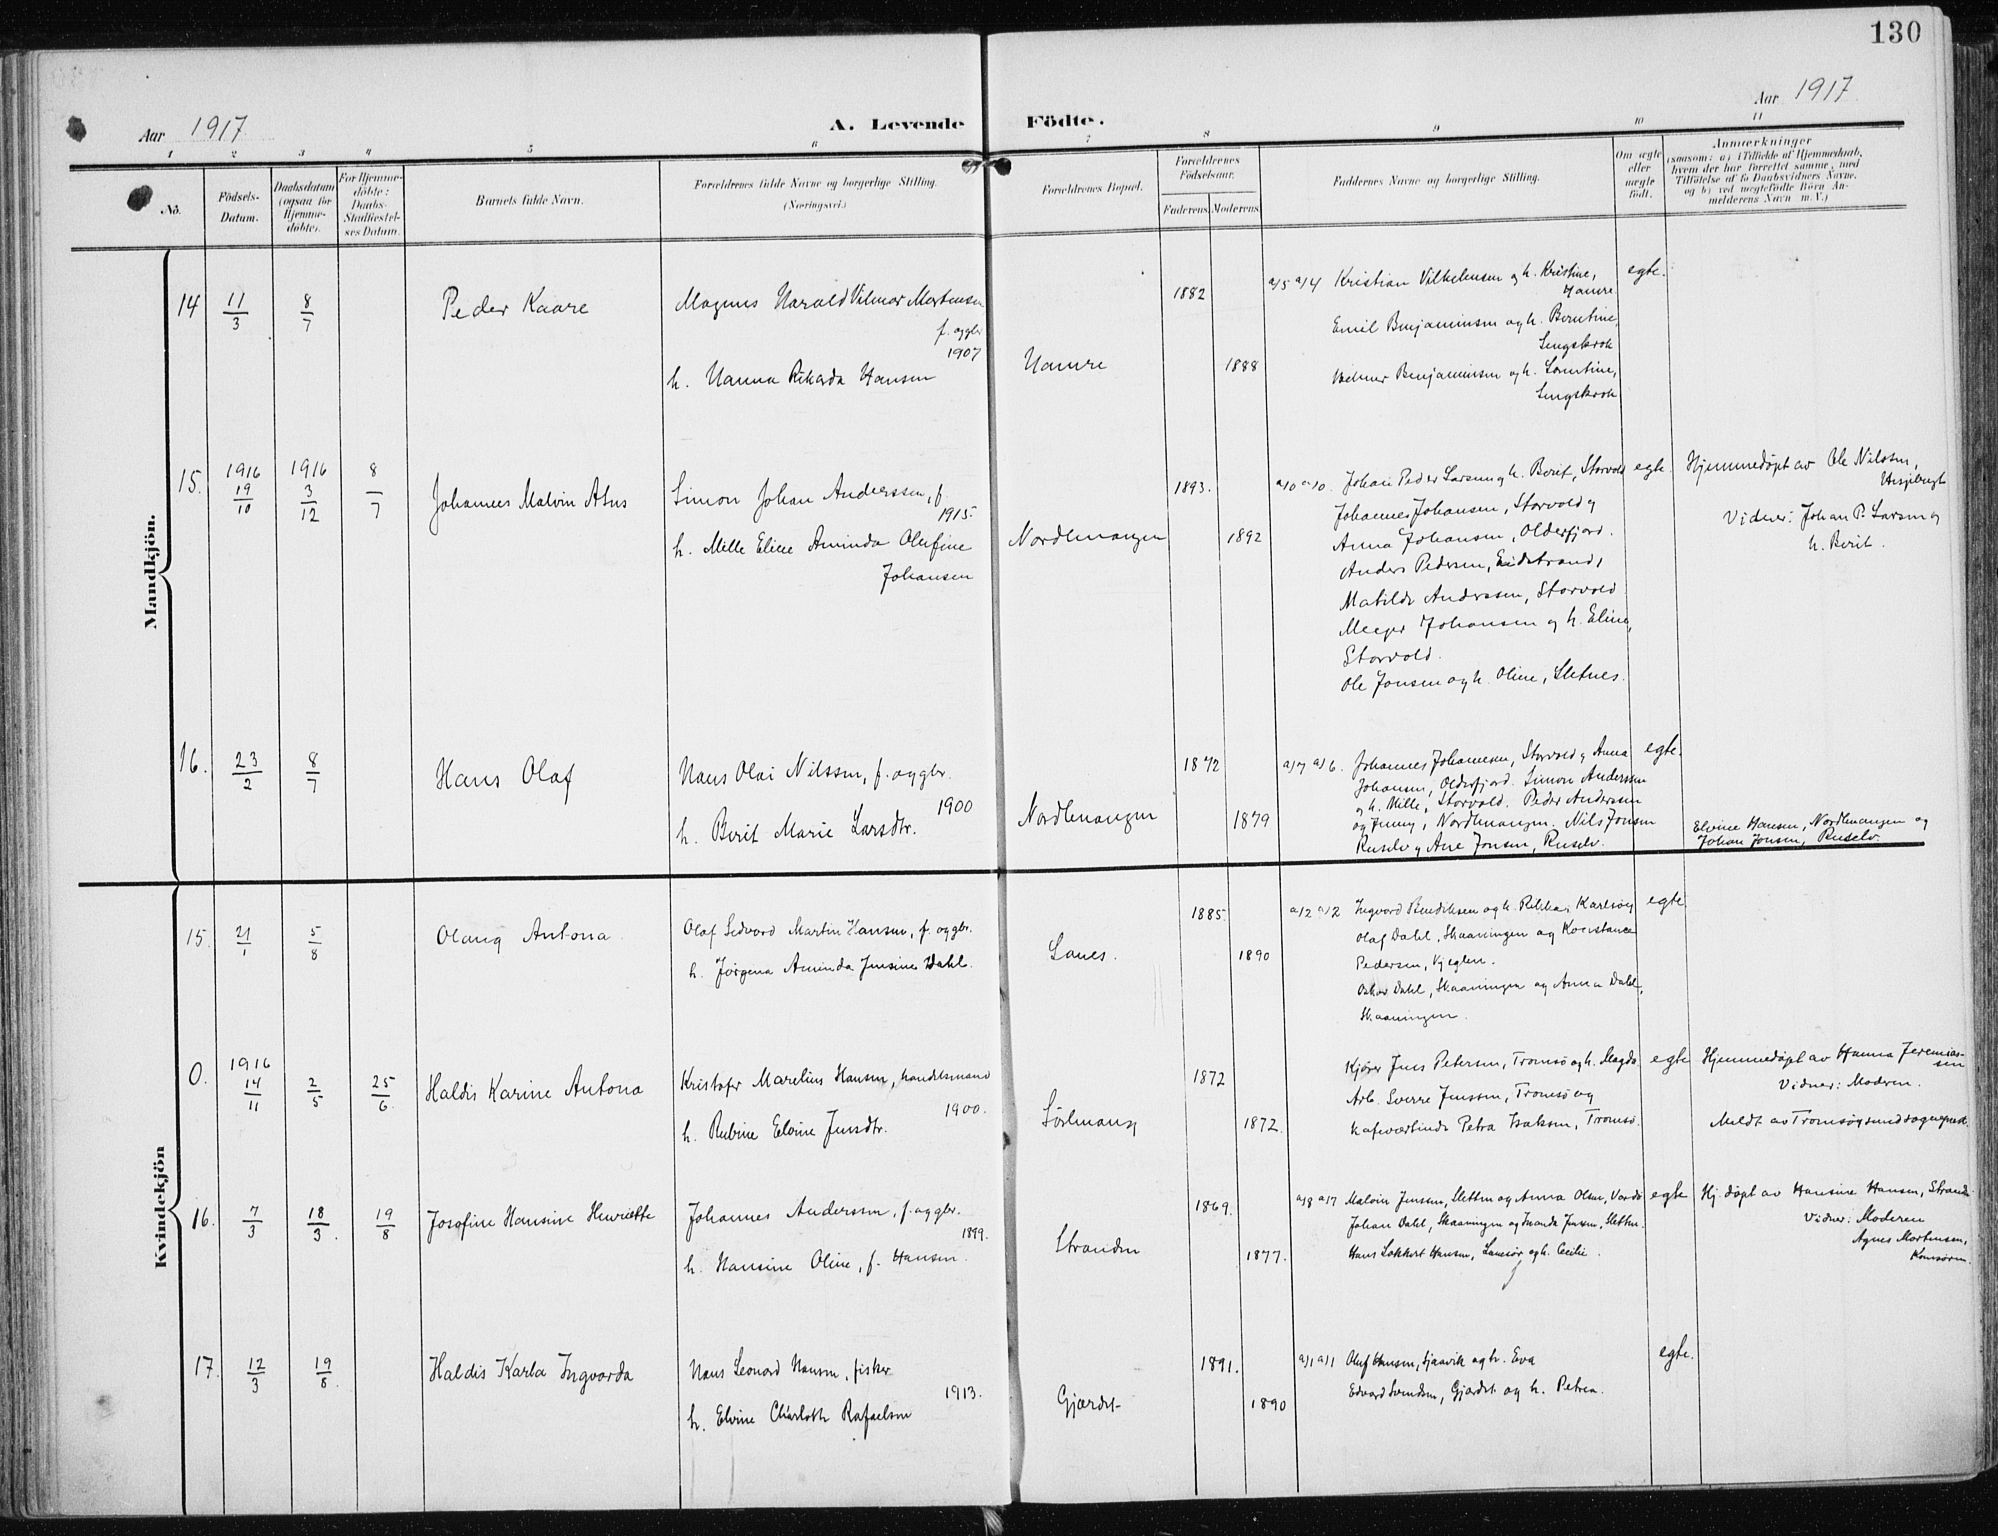 130
Aar 1917
A. Levende Födte.
Aar 1917
1 2 3 4 5 6 7 8 9 10 11
No.
Födsels-Datum.
Daabsdatum (ogsaa for Hjemme-döbte).
For Hjemme-döbte: Daabs-Stadfæstel-ses Datum.
Barnets fulde Navn.
Forældrenes fulde Navne og borgerlige Stilling.
(Næringsvei.)
Forældrenes Bopæl.
Forældrenes Födselsaar.
Faderens. Moderens.
Faddernes Navne og borgerlige Stilling.
Om ægte eller uægte födt.
Anmærkninger
(saasom: a) i Tilfælde af Hjemmedaab,
hvem der har forrettet samme, med
Tilföielse af to Daabsvidners Navne,
og b) ved uægtefödte Börn An-
melderens Navn m. V.)
Mandkjön.
14 11/3 8/7 Peder Kaare
Magnus Harald Vilmar Mortensen
f. og gbr
1907
h. Hanna Rikarda Hansen
Hamre
1882
1888
a/5 a/4 Kristian Vilhelmsen og h. Kristine,
Hamre
Emil Benjaminsen og h. Berntine,
Lengskrok
Benjaminsen og h.
Lengskrok
egte.
15. 1916 19/10 1916 3/12 8/7
Johannes Malvin Atus
Simon Johan Anderssen, f.
1915.
h. Mille Eline Aminda Olufine
Johansen
Nordlenangen
1893.
1892
a/10 a/10. Johan Peder Larsen og h. Berit, Storvold
Johannes Johansen, Storvold og
Anna Johansen, Olderfjord.
Anders Pedersen, Eidstrand,
Matilde Anderssen, Storvold
Johansen og h. Eline,
Storvold.
Ole Jonsen og h. Oline, Sletnes.
egte.
Hjemmedøpt av Ole Nilssen,
Vidner: Johan P. Larsen og
h. Berit.
16. 23/2 8/7 Hans Olaf
Hans Olai Nilssen, f. og gbr.
1900
h. Berit Marie Larsdtr.
Nordlenangen
1872
1879
a/7 a/6. Johannes Johannesen, Storvold og Anna
Johansen, Olderfjord. Simon Anderssen
og h. Mille, Storvold. Peder Anderssen
og Jenny, Nordlenangen. Nils Jonsen
Ruselv og Ane Jonsen, Ruselv.
egte.
Elvine Hansen, Nordlenangen og
Johan Jonsen, Ruselv.
Kvindekjön
15. 21/1 5/8 Olaug Antona
Olaf Sedvard Martin Hansen, f. og gbr.
h. Jørgena Aminda Jensine Dahl.
Lanes.
1885.
1890
a/2 a/2 Ingvard Bendiksen og h. Rikka, Karlsøy
Olaf Dahl, Skaaningen og Konstance
Pedersen,
Oskar Dahl, Skaaningen og Anna Dahl,
Skaaningen.
egte
0. 1916 14/11 2/5 25/6.
Haldis Karine Antona
Kristofer Marelius Hansen, handelsmand
1900.
h. Rubine Elvine Jensdtr.
Sørlenang
1872
1872.
Kjører Jens Petersen, Tromsø og h. Magda
Arb. Sverre Jenssen, Tromsø og
kafeværtinde Petra Isaksen, Tromsø.
egte
Hjemmedøpt av Hanna Jeremias-
sen
Vidner: Modren.
Meldt av Tromsøysund sogneprest.
16. 7/3 18/3. 19/8
Josefine Hansine Henriette
Johannes Anderssen, f. og gbr.
1899.
h. Hansine Oline, f. Hansen.
Stranden
1869.
1877.
a/8 a/7 Malvin Jenssen, Sletten og Anna Olsen, Vardø
Johan Dahl, Skaaningen og Jensen, Sletten.
Hans Lokkert Hansen, og h. Cecilie.
egte
Hj. døpt av Hansine Hansen, Stranden
Vidner: Moderen
Agnes Mortensen,
17. 12/3 19/8. Haldis Karla Ingvarda
Hans Leonard Hansen, fisker
1913.
h. Elvine Charloth Rafaelsen
Gjærdet
1891.
1890
a/1 a/1 Oluf Hansen, Sjaavik og h. Eva
Edvard Svendsen, Gjærdet og h. Petrea.
egte.